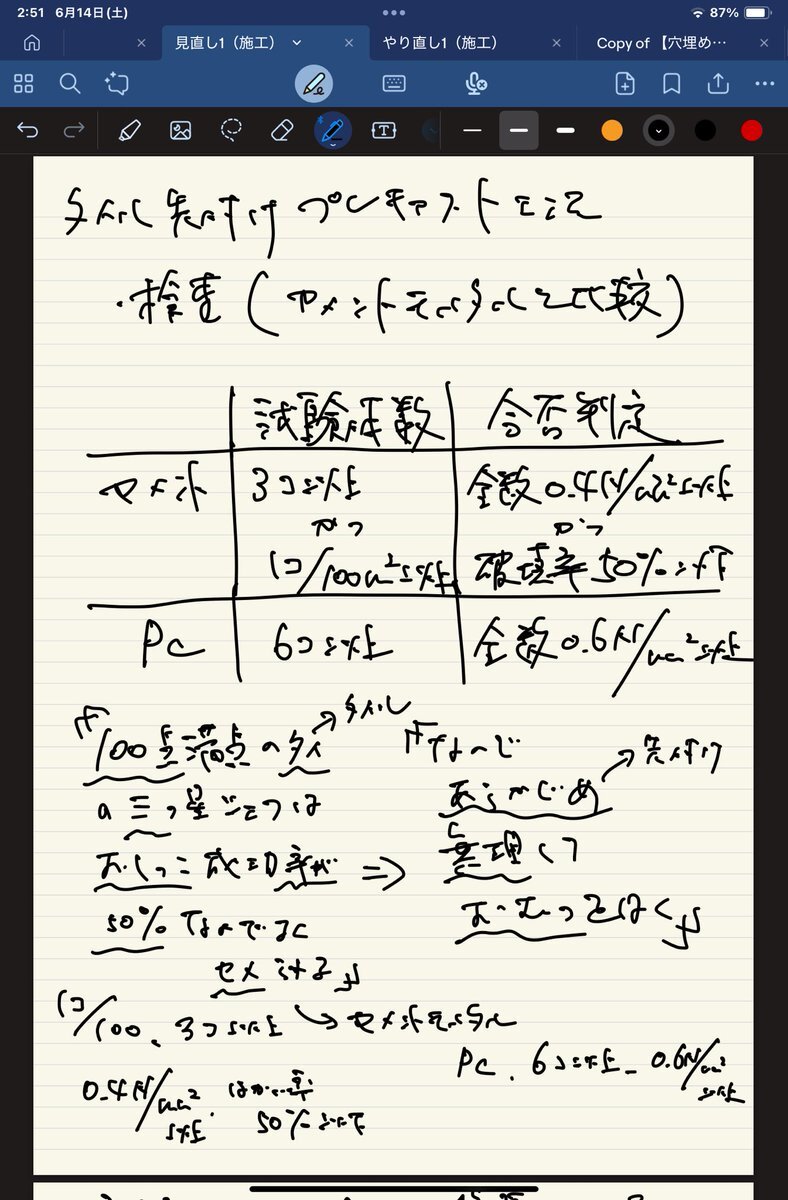 2:51 6月14日(土) 87%
見直し1（施工） やり直し1（施工） Copy of 【穴埋め…
タイル先付けプレキャスト工法
・検査(セメント モルタルと比較)
試験体数 合否判定
セメント 3コ以上 全数0.4N/mm²以上
かつ かつ
1コ/100m²以上 破壊率50%以下
PC 6コ以上 全数0.6N/mm²以上
「100点満点のタイ →タイル
の三つ星シェフは
おしっこ成功率が ⇒
50%なのでよく
セメ
「なので
あらかじめ →先付け
整理して
おむつをはく」
1コ/100、3コ以上 →セメントモルタル
0.4N/mm²以上.
50%以下
PC、6コ以上_0.6N/mm²以上